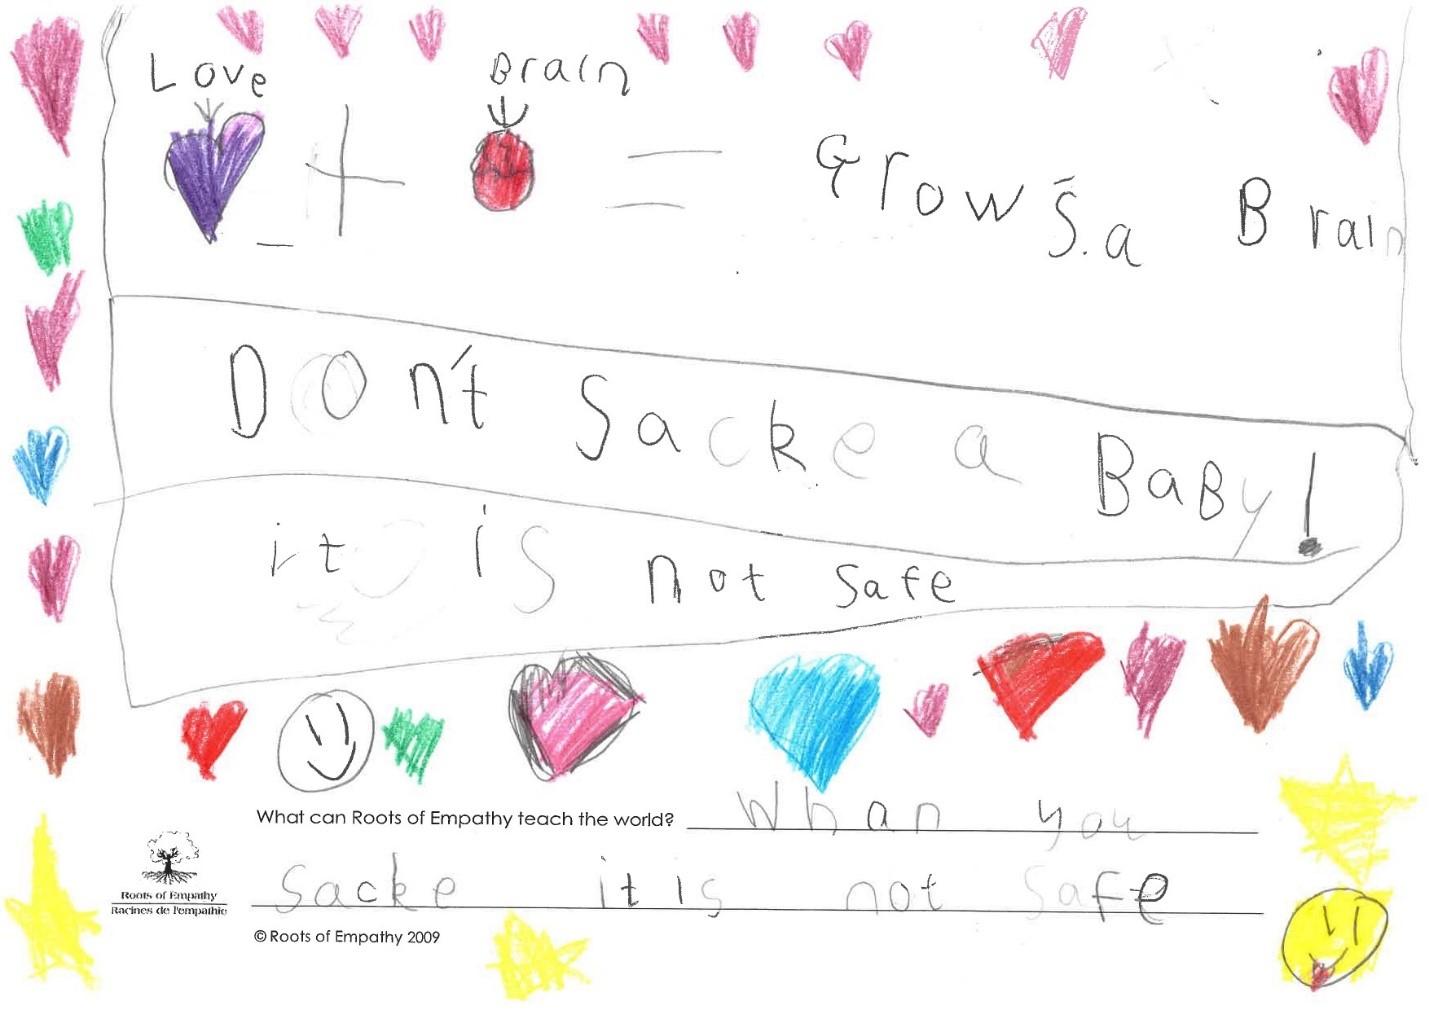 Love Brain
+ = Grows.a Brain
Don't Sacke a BaBy!
it is not safe
What can Roots of Empathy teach the world? Whan you
Sacke it is not Safe
Roots of Empathy
Racines de l'empathie
© Roots of Empathy 2009